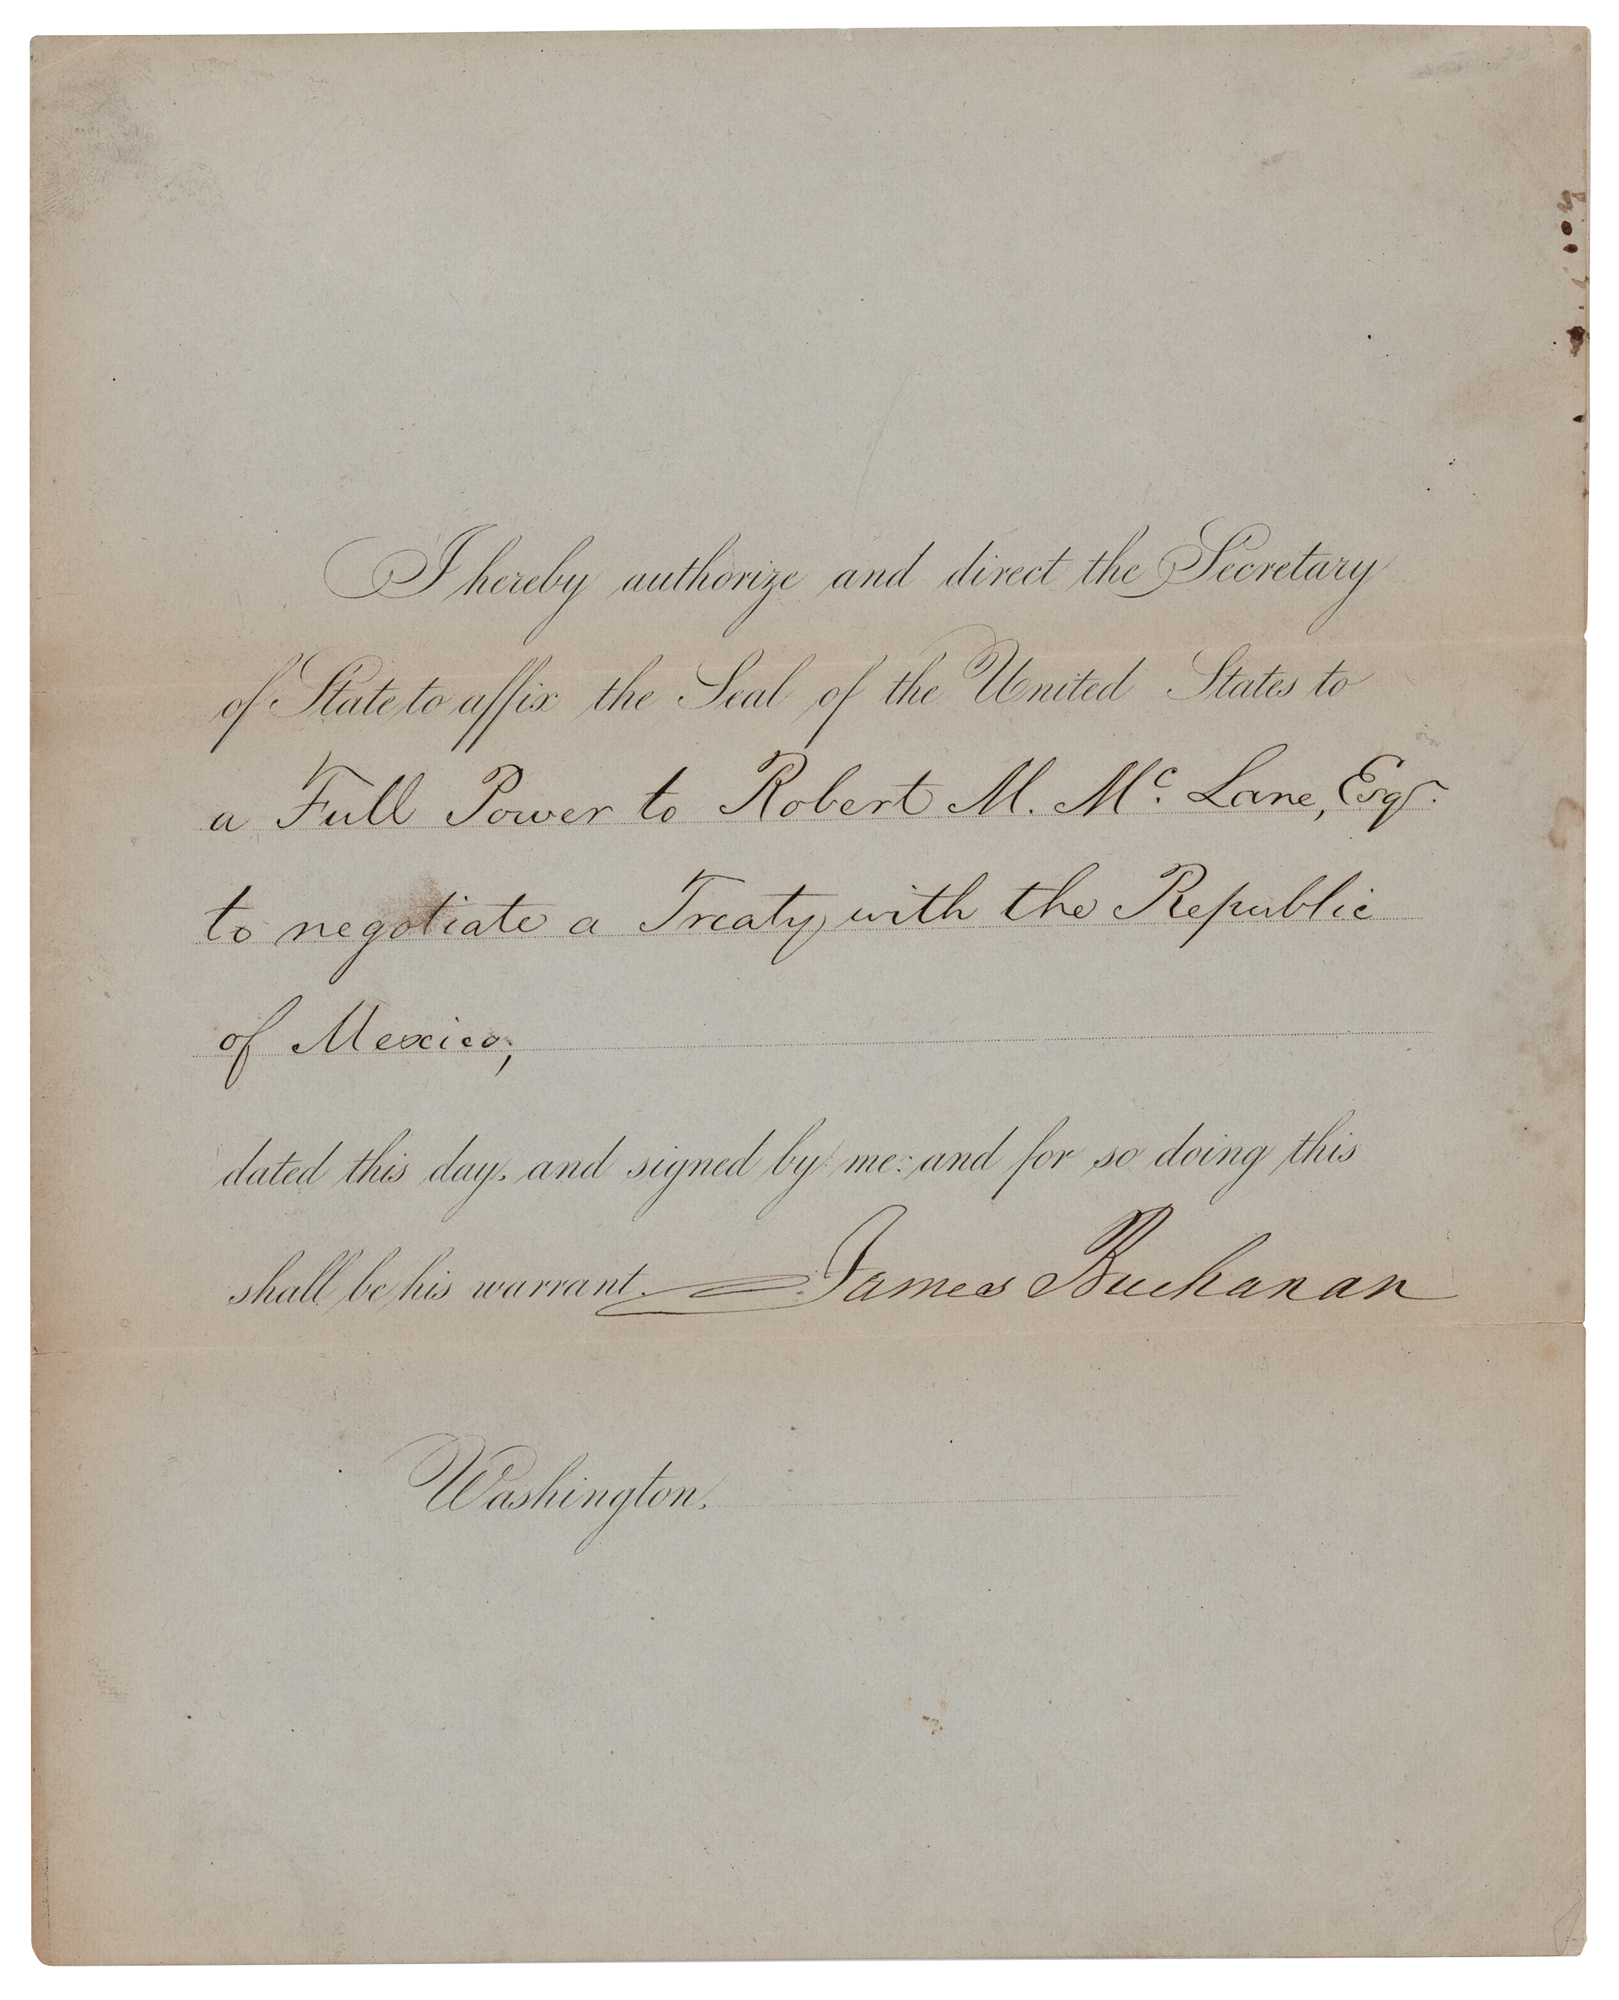 I hereby authorize and direct the Secretary
of State to affix the Seal of the United States to
a Full Power to Robert M. Mc. Lane, Esqr.
to negotiate a Treaty with the Republic
of Mexico,
dated this day, and signed by me: and for so doing this
shall be his warrant. James Buchanan
Washington,